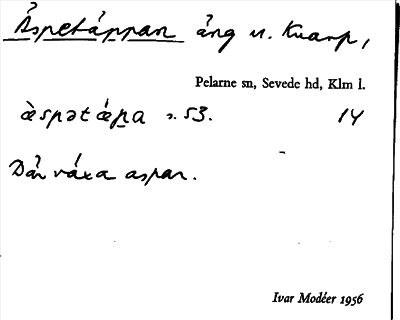 Äspetáppan äng v. Knarp,
Pelarne sn, Sevede hd, Klm l.
æ̀spət áp̲a s. 53. 14
Där växa aspar.
Ivar Modéer 1956